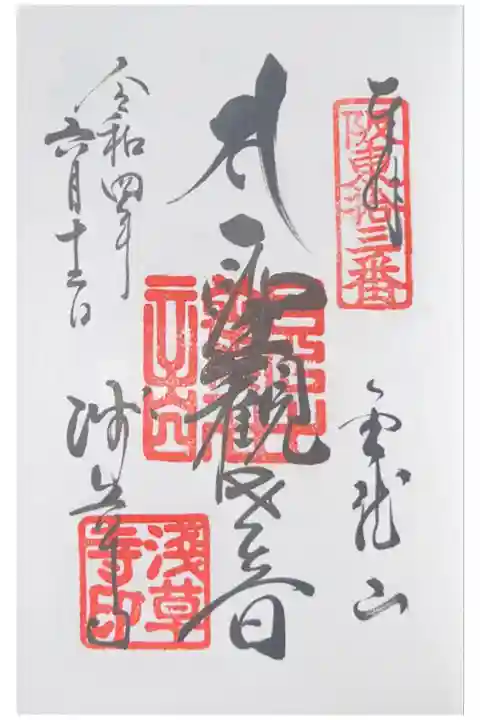 奉拝
阪東拾三番
金龍山
聖観世音
令和四年
六月十二日
浅草寺
淺草寺印